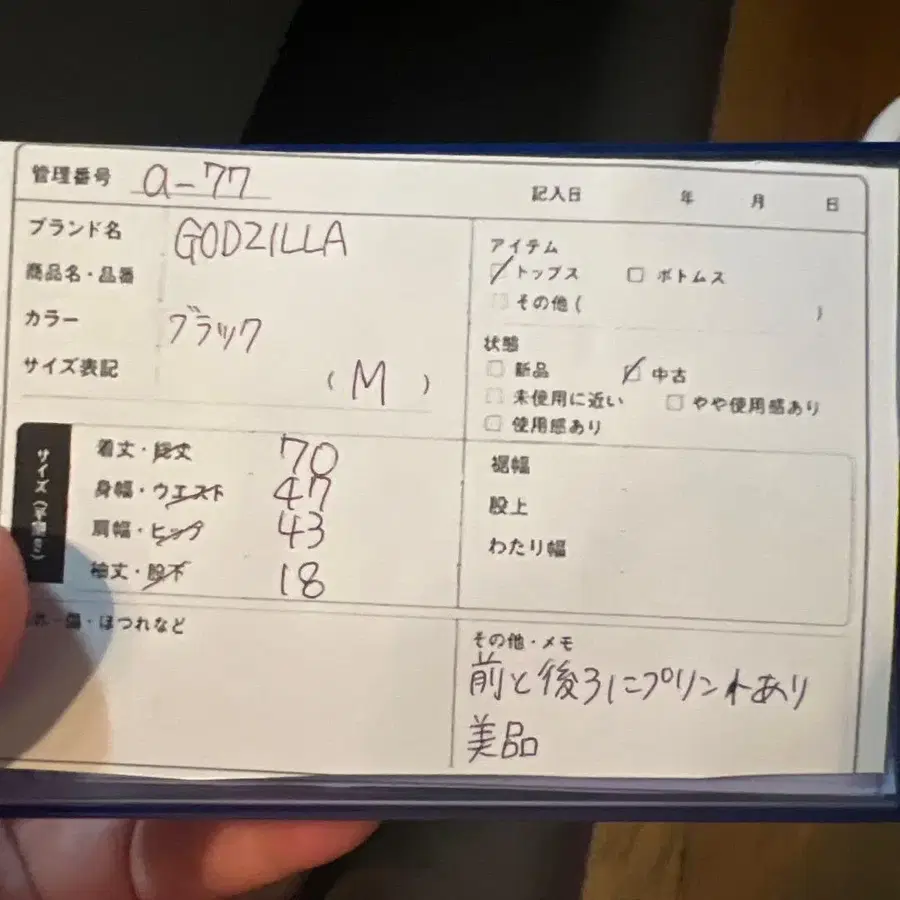 管理番号 a-77
記入日 年 月 日
ブランド名 GODZILLA
商品名・品番
カラー ブラック
サイズ表記 (M)
アイテム
トップス ボトムス
その他( )
状態
新品 中古
未使用に近い やや使用感あり
使用感あり
サイズ
着丈・総丈 70
身幅・ウエスト 47
肩幅・ヒップ 43
袖丈・股下 18
裾幅
股上
わたり幅
・傷・ほつれなど
その他・メモ
前と後ろにプリントあり
美品